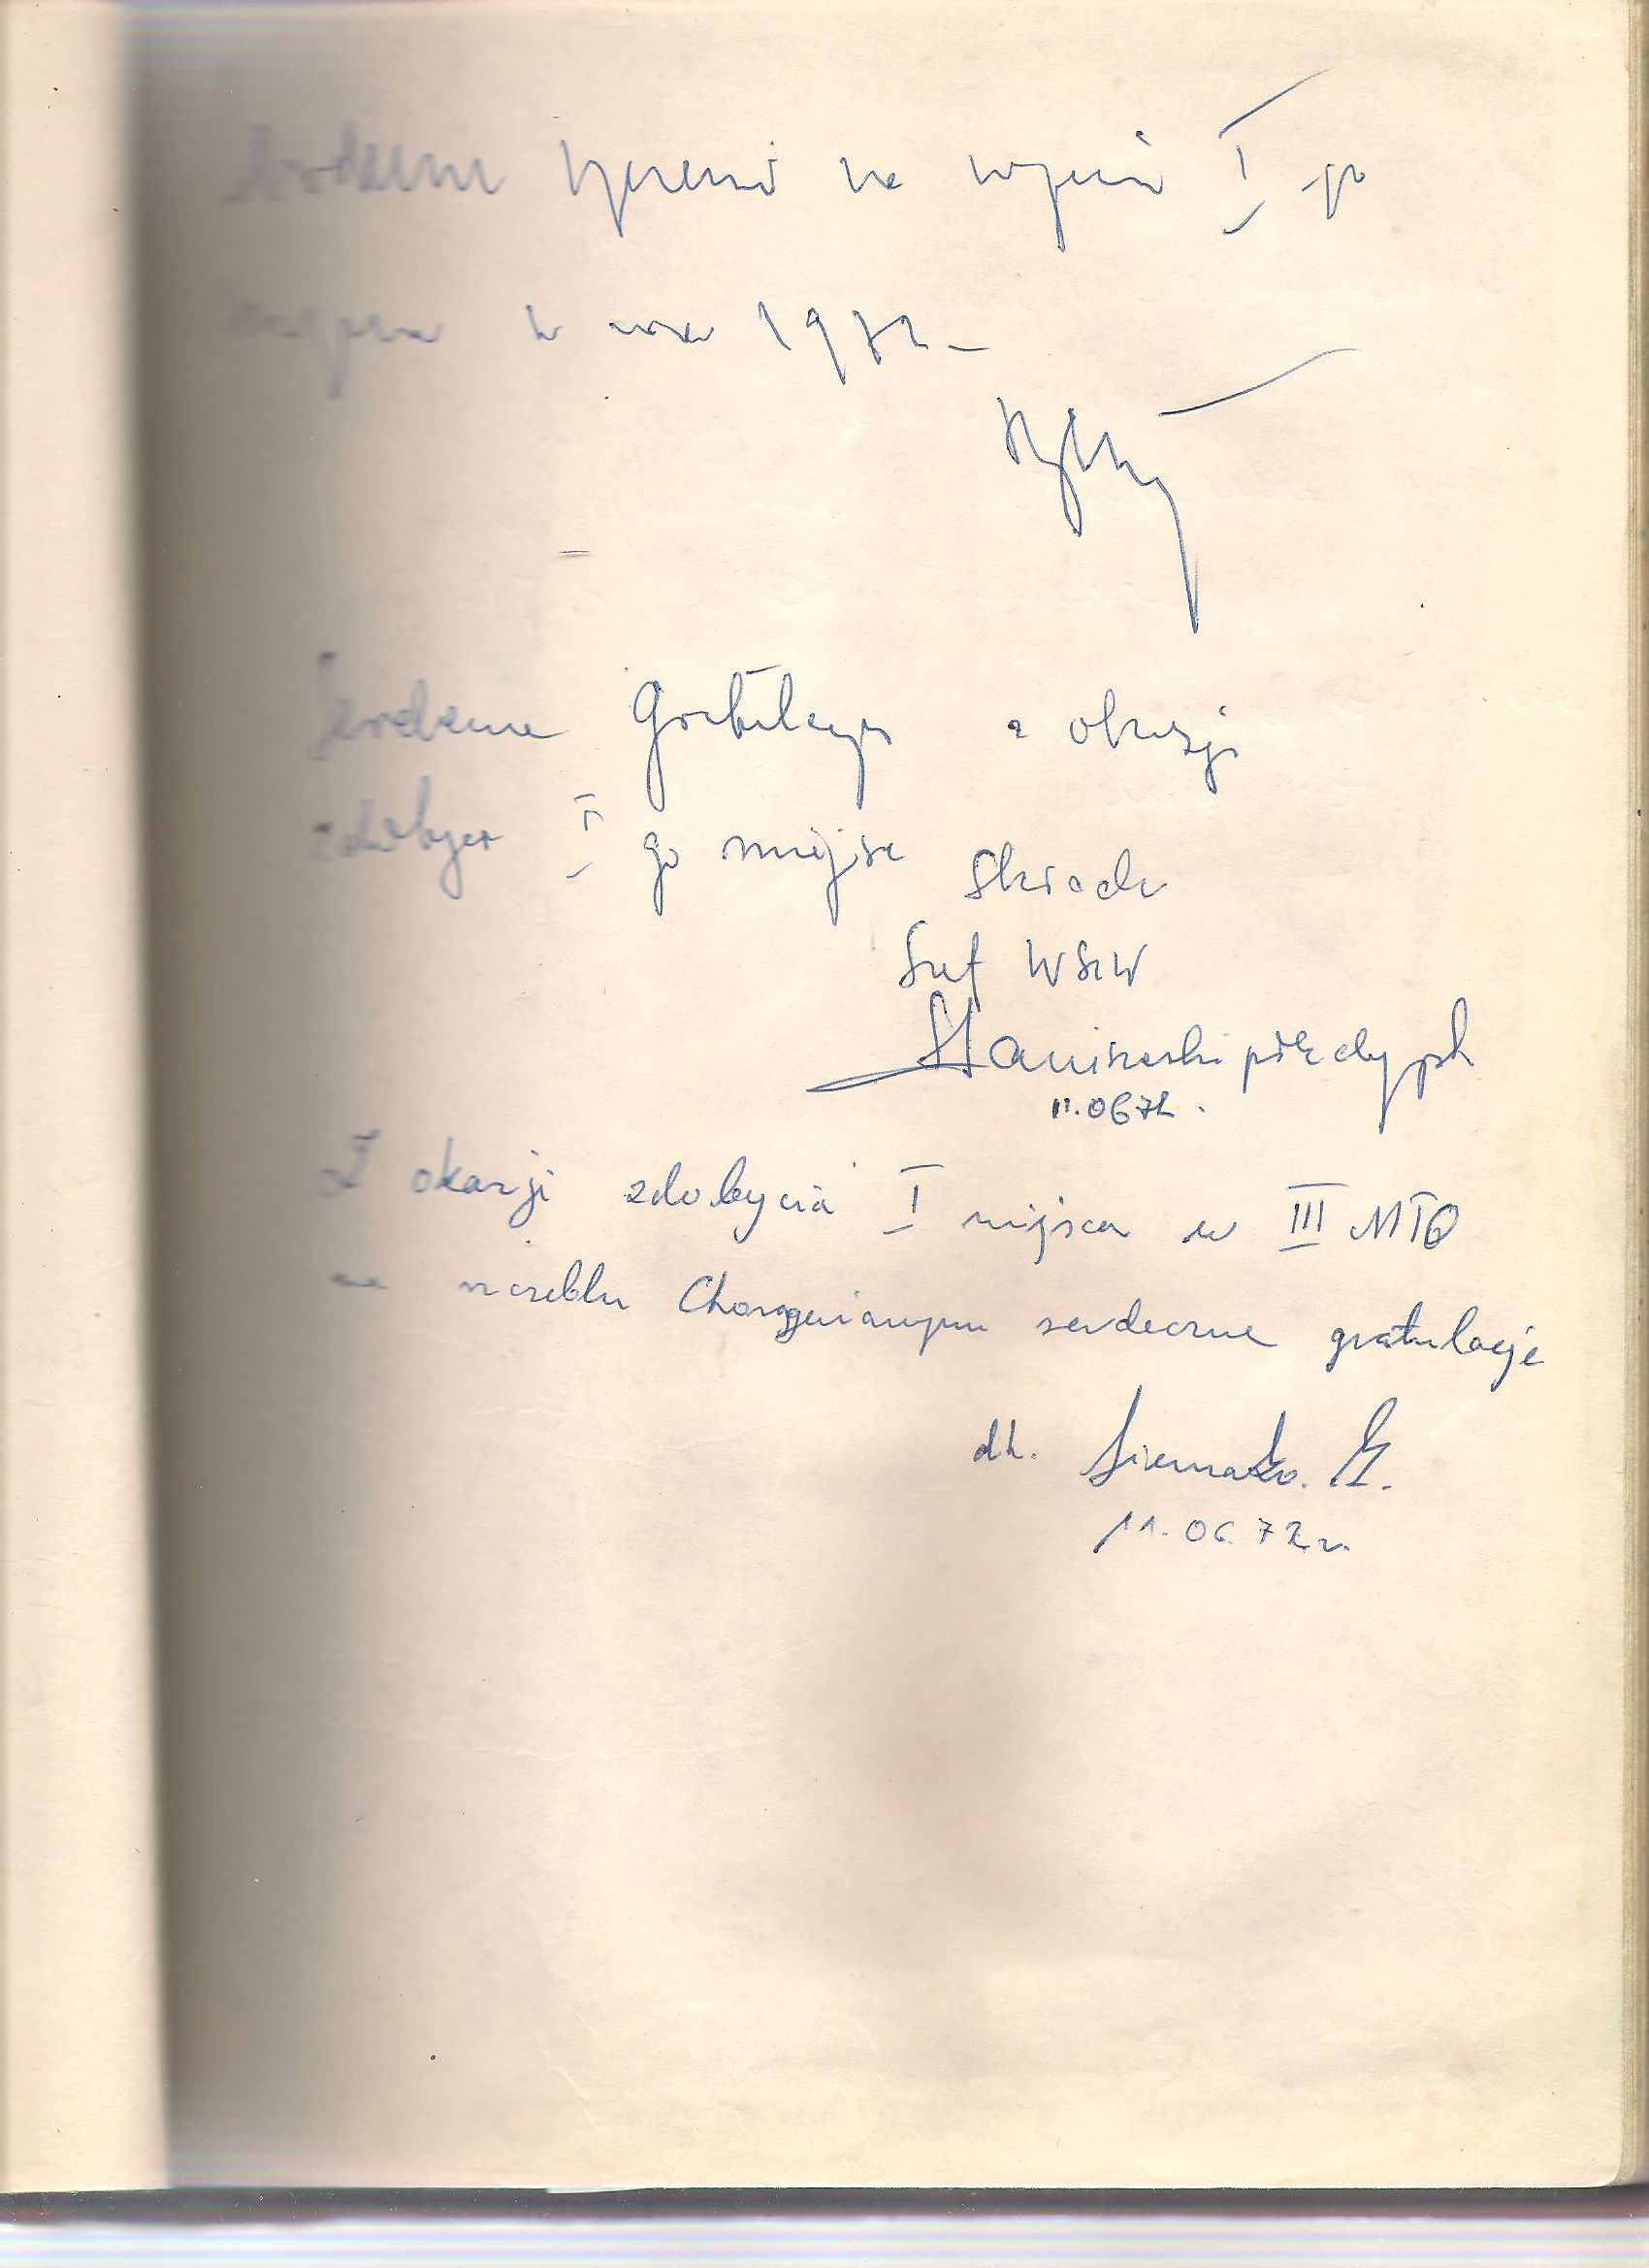 Serdeczne życzenia na wyjściu I go
w roku 1972 –
Serdeczne Gratulacje z okazji
zdobycia I go miejsca składa
Szef WSzW
Staniszewski płk dypl
11.06 72 .
Z okazji zdobycia I miejsca w III MTO
na szczeblu Chorągwianym serdeczne gratulacje
dh.
11.06.72 r.